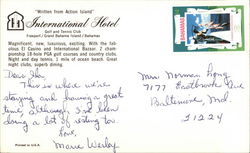 "Written from Action Island"
International Hotel
Golf and Tennis Club
Freeport / Grand Bahama Island / Bahamas
Magnificent, new, luxurious, exciting. With the fab-
ulous El Casino and International Bazaar. 2 champ-
ionship 18-hole PGA golf courses and country clubs.
Night and day tennis. 1 mile of ocean beach. Great
night clubs, superb dining.
Dear
This is where we're
staying and having a great
time although I've been
doing a lot of resting too.
Love,
Marie
Mrs Norman Long
7177
Baltimore, Md
21224
BAHAMAS
Printed in U.S.A.